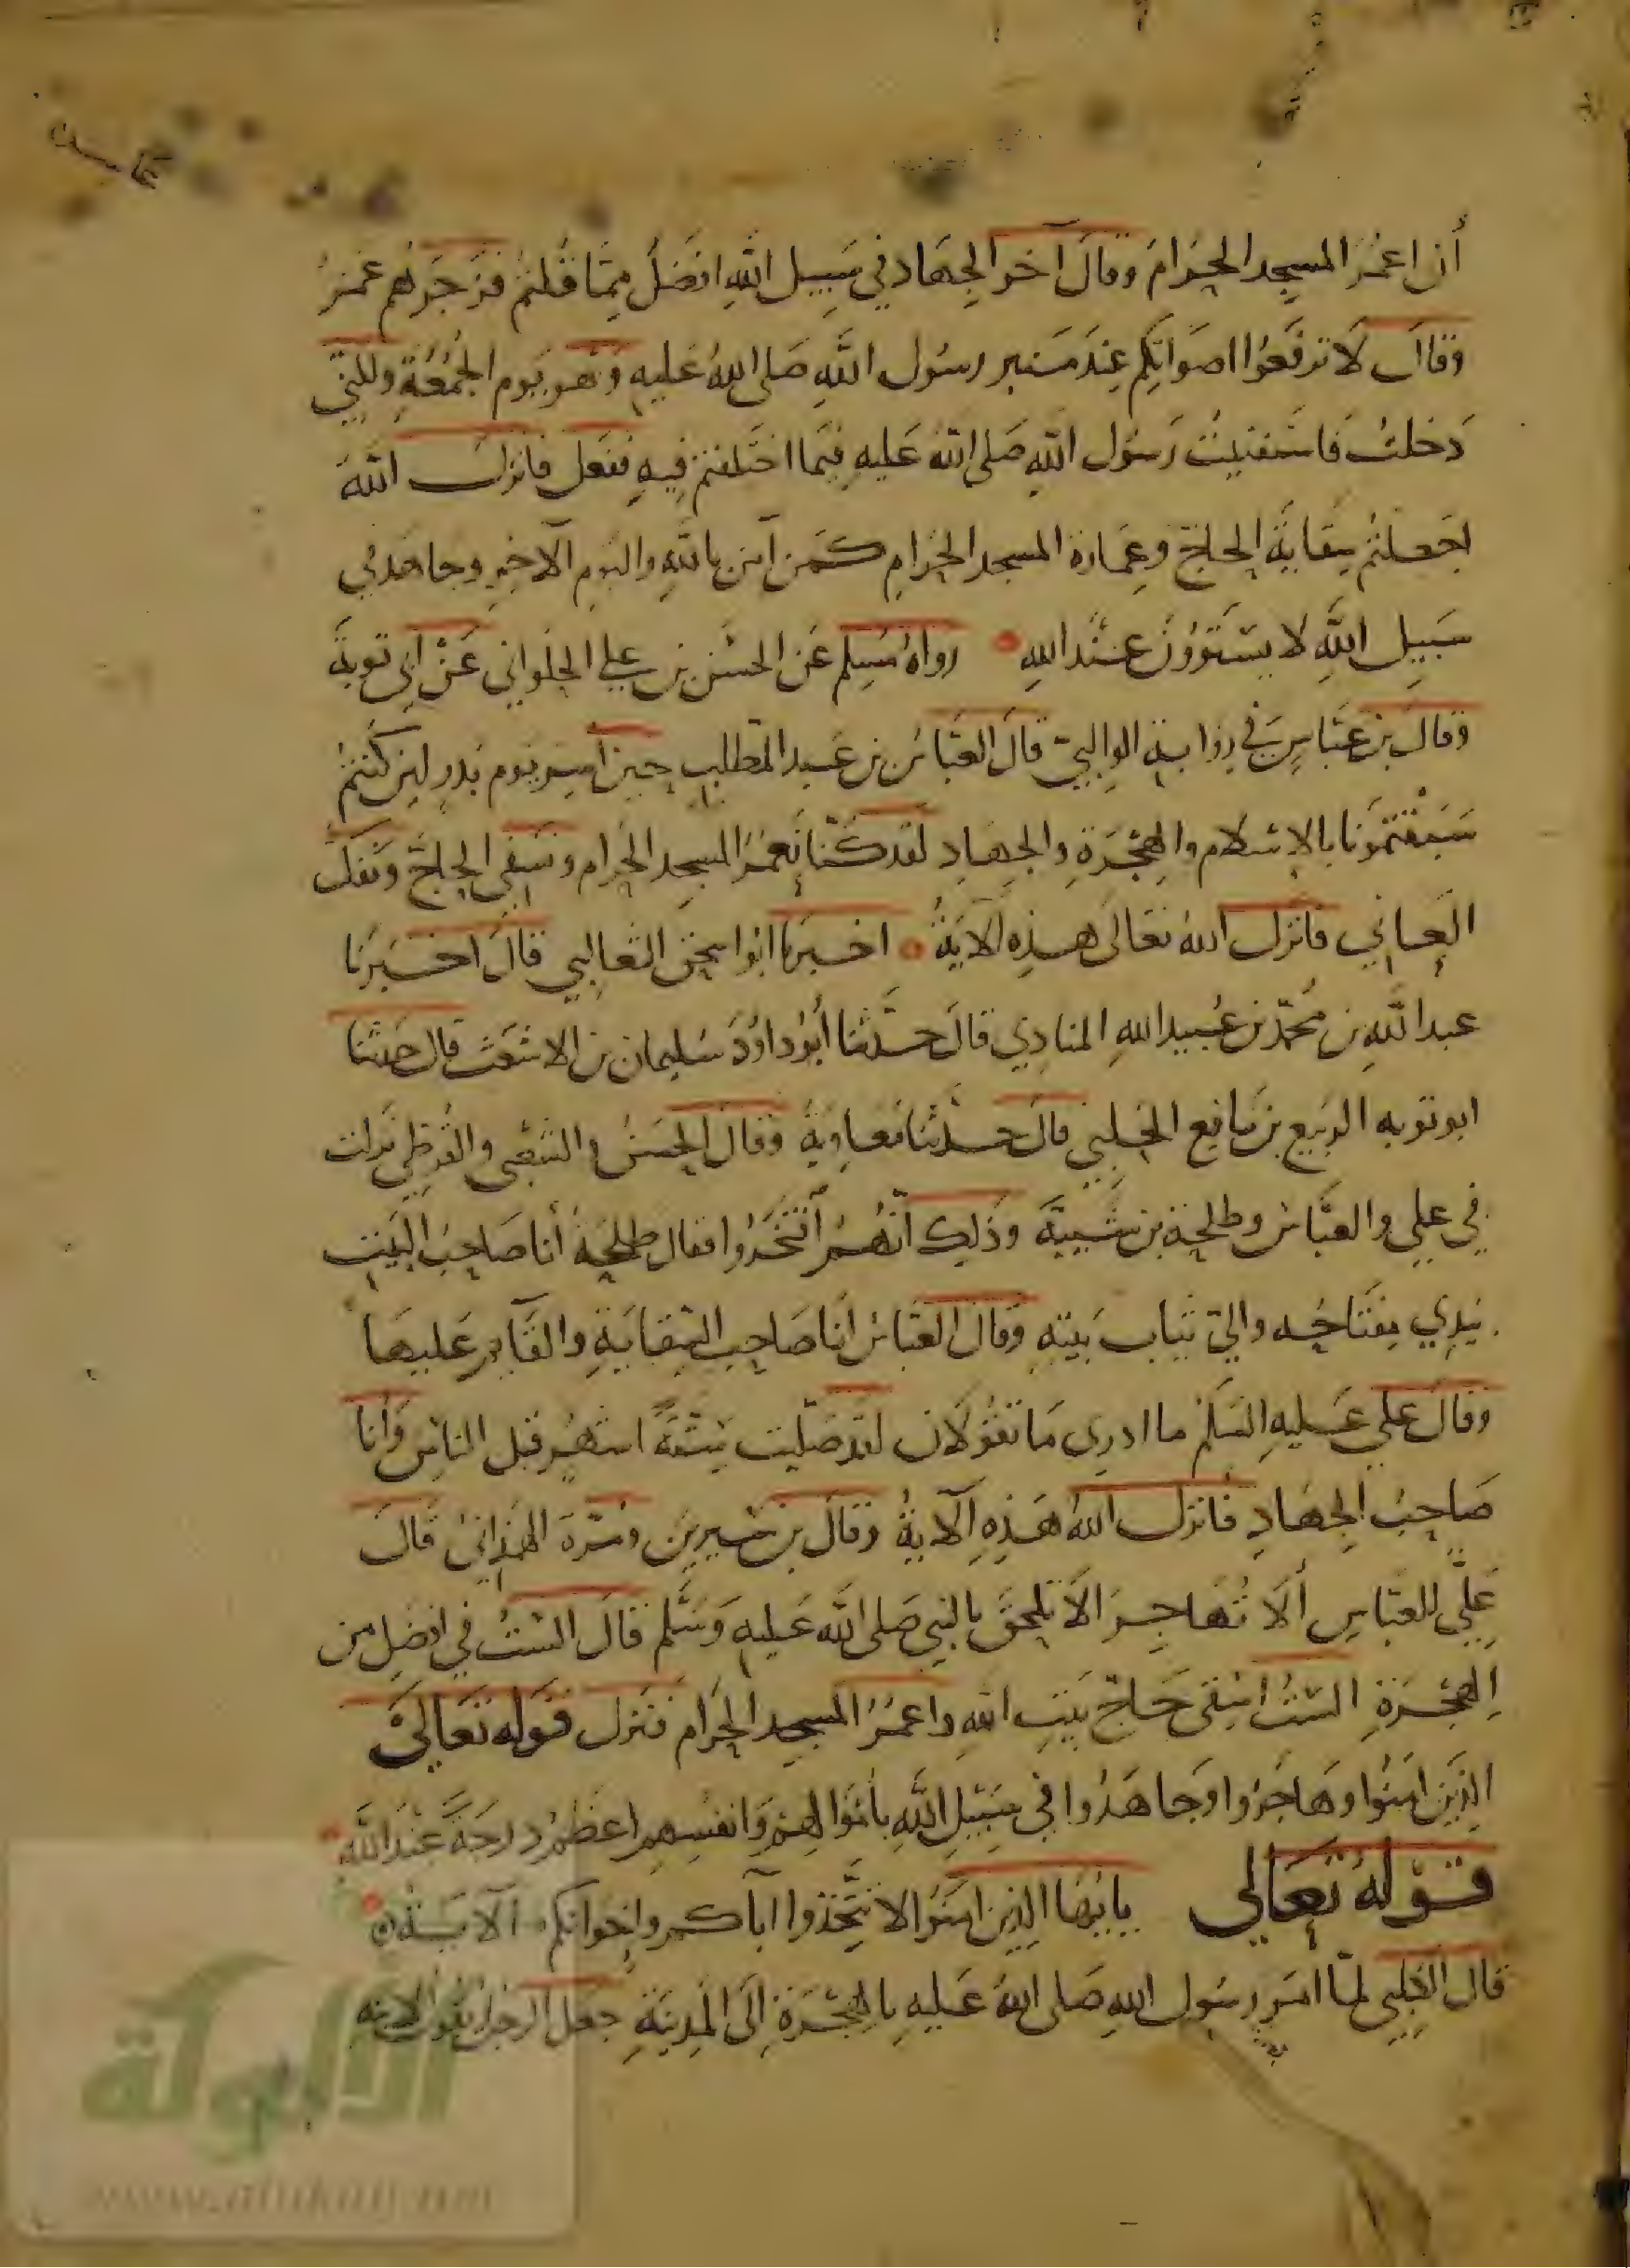 عاسه
أن اعمُرَ المسجد الحرام وقال آخر الجهاد في سبيل الله افضل مما قلتم فزجرهم عمر
وقال لا ترفعوا اصواتكم عند منبر رسول الله صلى الله عليه وهو يوم الجمعة ولكني
دخلت فاستفتيت رسول الله صلى الله عليه فيما اختلفتم فيه ففعل فانزل الله
اجعلتم سقاية الحاج وعمارة المسجد الحرام كمن آمن بالله واليوم الآخر وجاهد في
سبيل الله لا يستوون عند الله رواه مسلم عن الحسن بن علي الحلواني عن ابي توبة
وقال بن عباس في رواية الوالبي قال العباس بن عبد المطلب حين أسر يوم بدر لين كنتم
سبقتمونا بالإسلام والهجرة والجهاد لقد كنا نعمر المسجد الحرام ونسقي الحاج ونفك
العاني فانزل الله تعالى هذه الآية اخبرنا ابو اسحق الثعالبي قال اخبرنا
عبد الله بن محمد بن عبيد الله المنادي قال حدثنا أبو داود سليمان بن الاشعث قال حدثنا
ابو توبه الربيع بن نافع الحلبي قال حدثنا معاوية وقال الحسن والشعبي والقرظي نزلت
في علي والعباس وطلحة بن شيبة وذلك أنهم أفتخروا فقال طلحة أنا صاحب البيت
بيدي مفتاحه والي ثياب بيته وقال العباس انا صاحب السقاية والقآيم عليها
وقال علي عليه السلم ما ادرى ما تقولان لقد صليت ستة اشهر قبل الناس وأنا
صاحب الجهاد فانزل الله هذه الآية وقال بن سيرين ومرة الهمداني قال
علي للعباس ألا تهاجر ألا تلحق بالنبي صلى الله عليه وسلم فقال الست في افضل من
الهجرة الست اسقى حاج بيت الله واعمر المسجد الحرام فنزل قوله تعالى
الذين امنوا وهاجروا وجاهدوا في سبيل الله باموالهم وانفسهم اعظم درجة عند الله
قوله تعالى يايها الذين امنوا لا تتخذوا اباكم واخوانكم الآية
قال الكلبي لما امر رسول الله صلى الله عليه بالهجرة الى المدينة جعل الرجل يقول لابنه
الألوكة
www.alukah.net